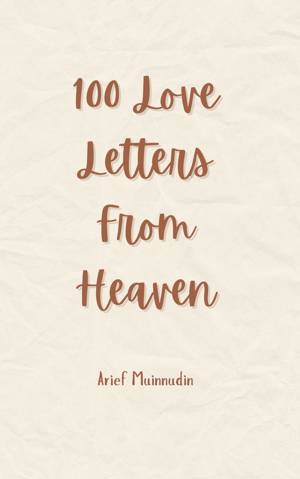 100 Love
Letters
From
Heaven
Arief Muinnudin